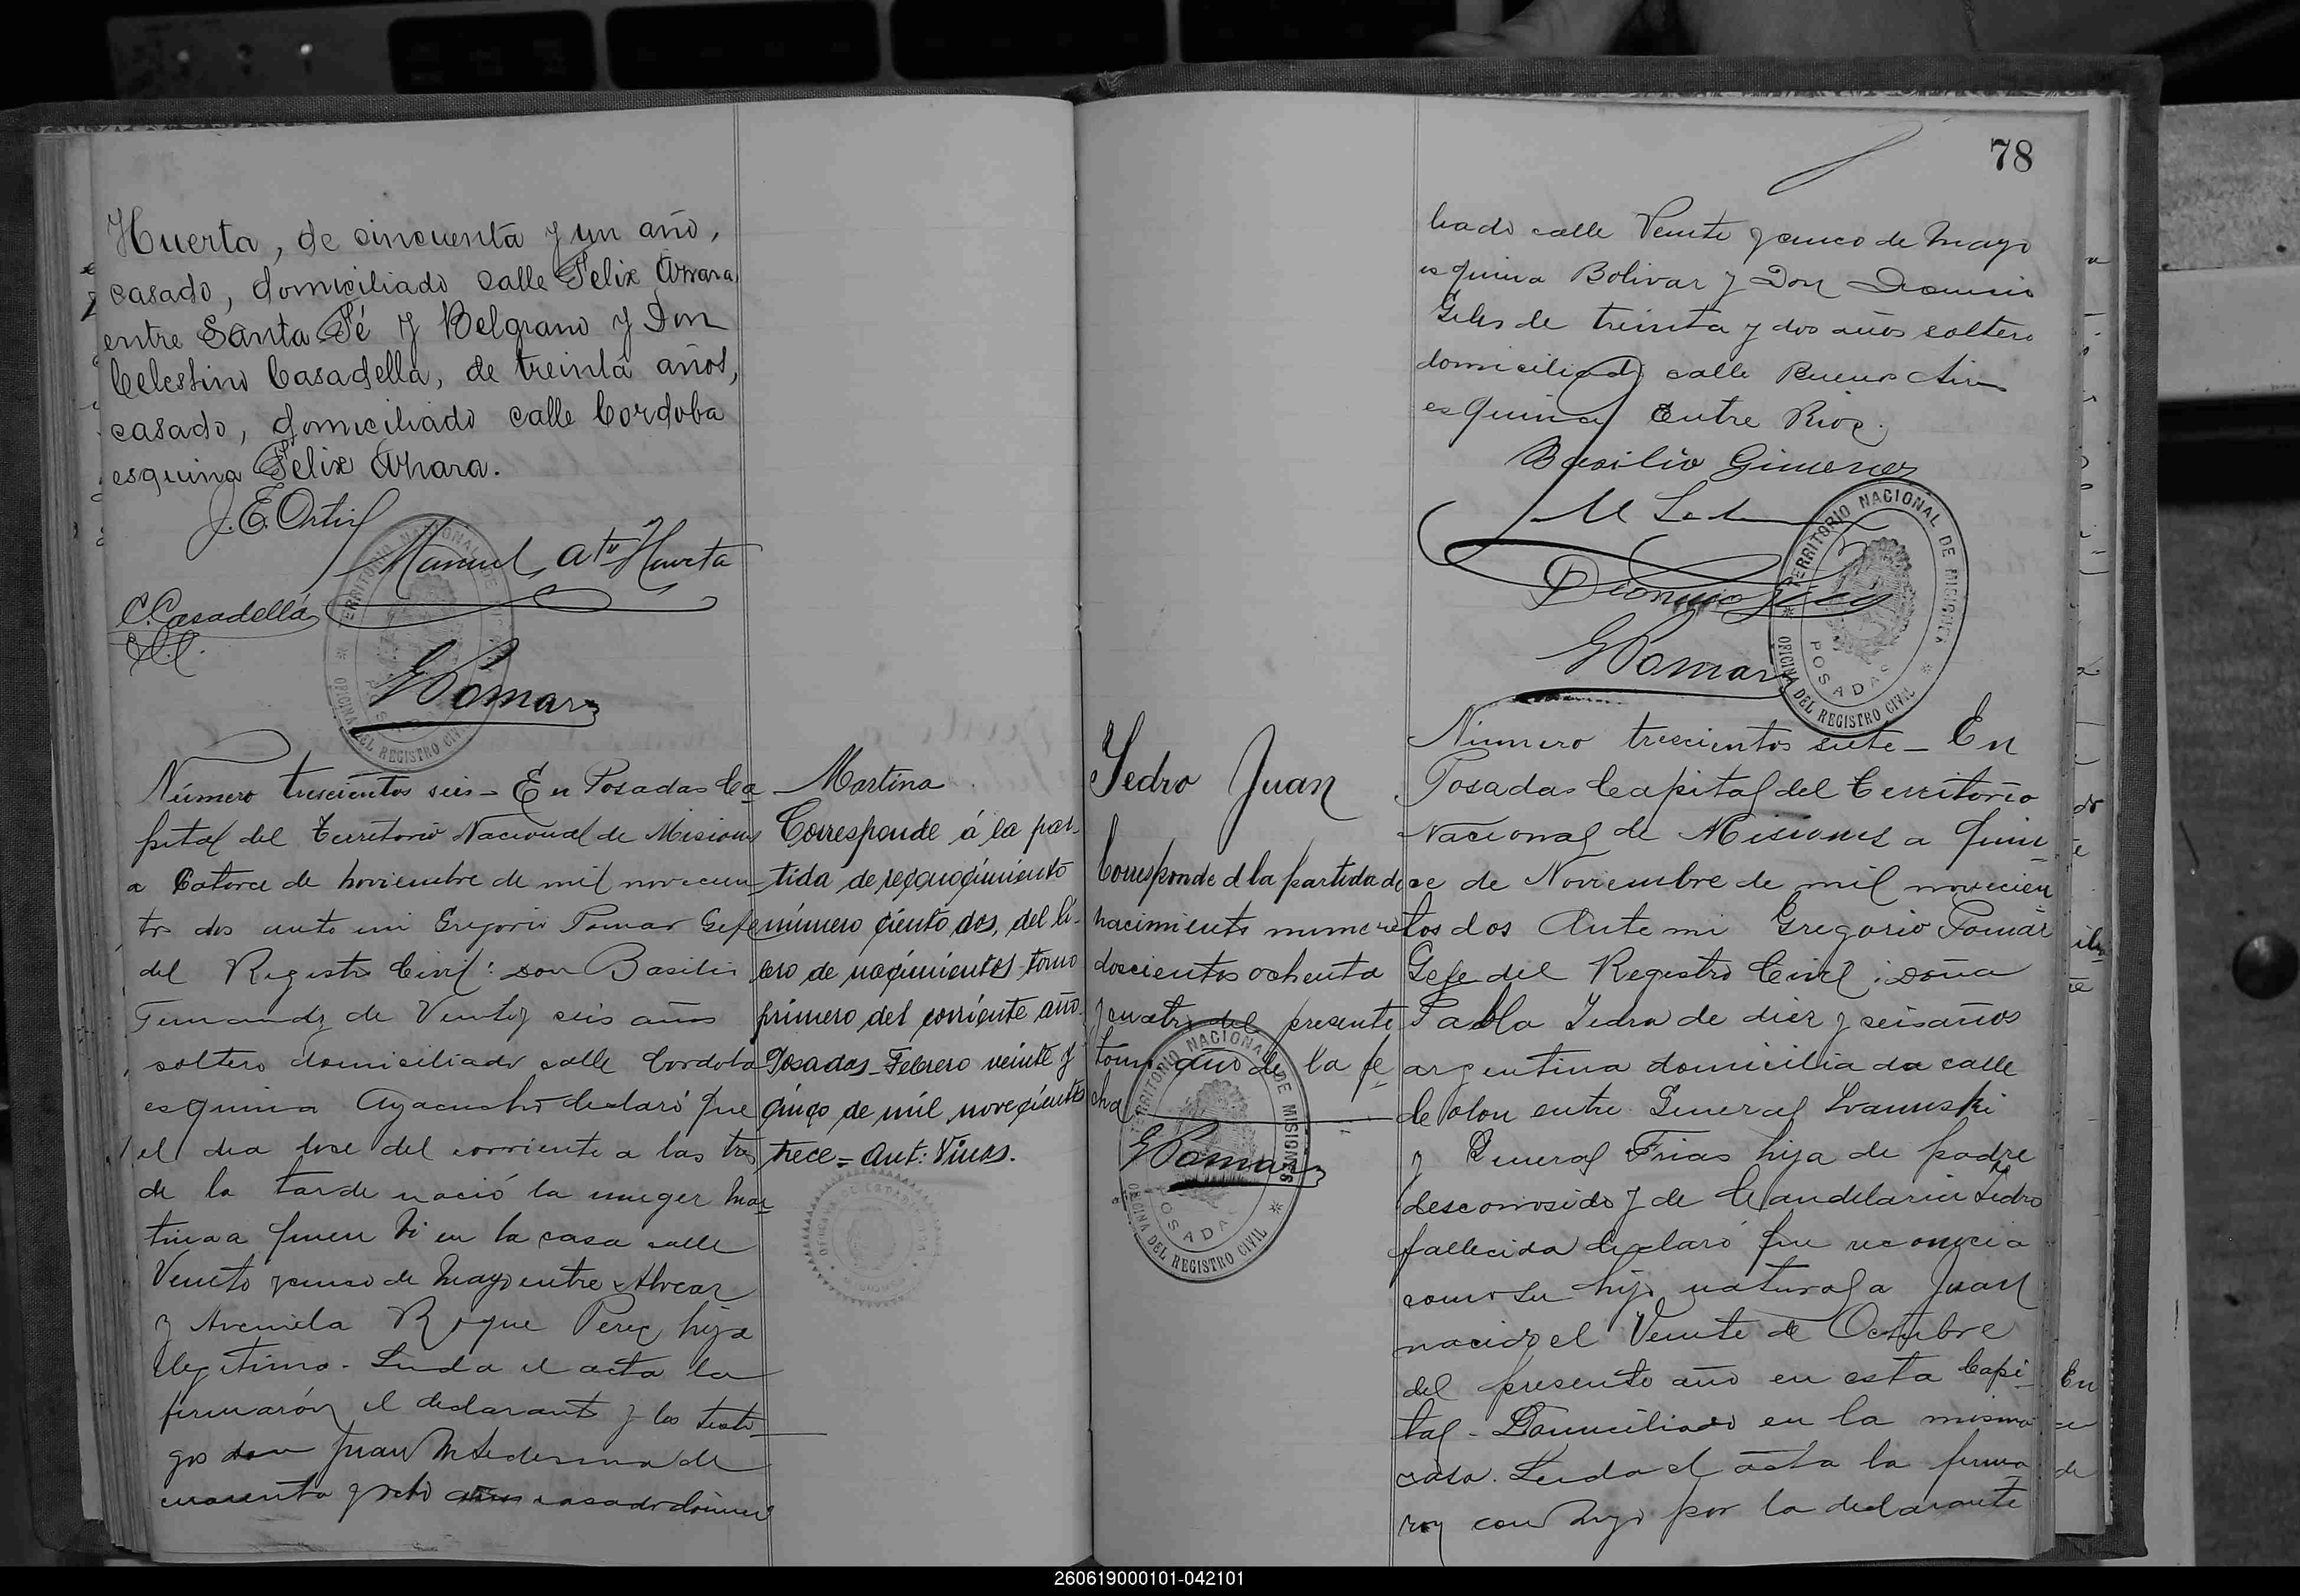 Huerta, de cincuenta y un año,
casado, domiciliado calle Felix Azara,
entre Santa Fé y Belgrano y Don
Celestino Casadella, de treinta años,
casado, domiciliado calle Cordoba
esquina Felix Azara.
J. E. Ortiz
Manuel Huerta
C. Casadella
G Pomar
TERRITORIO NACIONAL DE
POSADAS
OFICINA DEL REGISTRO CIVIL
Número trescientos seis - En Posadas Ca
pital del Territorio Nacional de Misiones
a Catorce de Noviembre de mil novecien
tos dos ante mi Gregorio Pomar Gefe
del Registro Civil: Don Basilio
de Veinte y seis años
soltero domiciliado calle Cordoba
esquina Ayacucho declaró que
el dia dose del corriente a las tres
de la tarde nació la muger Mar
tina a quien vi en la casa calle
Veinte y cinco de Mayo entre Alvear
y Avenida Roque Perez hija
ilegitima. Leida el acta la
firmarón el declarante y los testi
gos don Juan M Ledesma de
cuarenta y ocho años casado domici
Martina
Corresponde á la par-
tida de reconocimiento
número ciento dos, del li-
bro de nacimientos tomo
primero del corriente año.
Posadas - Febrero veinte y
cinco de mil novecientos
trece = Ant: Vinas.
78
liado calle Veinte y cinco de Mayo
esquina Bolivar y Don Dionisio
Giles de treinta y dos años soltero
domiciliado calle Buenos Aires
esquina Entre Rios.
Basilio Gimenez
Dionisio
G Pomar
TERRITORIO NACIONAL DE MISIONES
POSADAS
OFICINA DEL REGISTRO CIVIL
Yedro Juan
Corresponde a la partida de
nacimiento numero
doscientos ochenta
y cuatro del presente
tomo año de la fe
cha
G Pomar
TERRITORIO NACIONAL DE MISIONES
POSADAS
OFICINA DEL REGISTRO CIVIL
Número trescientos siete - En
Posadas Capital del Territorio
Nacional de Misiones a quin
ce de Noviembre de mil novecien
tos dos Ante mi Gregorio Pomar
Gefe del Registro Civil: Doña
Pabla Yedro de diez y seis años
argentina domiciliada calle
de olon entre General
y General Frias hija de padre
desconosido y de Candelaria Yedro
fallecida declaró que reconocia
como su hijo natural a Juan
nacido el Veinte de Octubre
del presente año en esta Capi
tal - Domiciliado en la misma
casa. Leida el acta la firma
ron con migo por la declarante
260619000101-042101